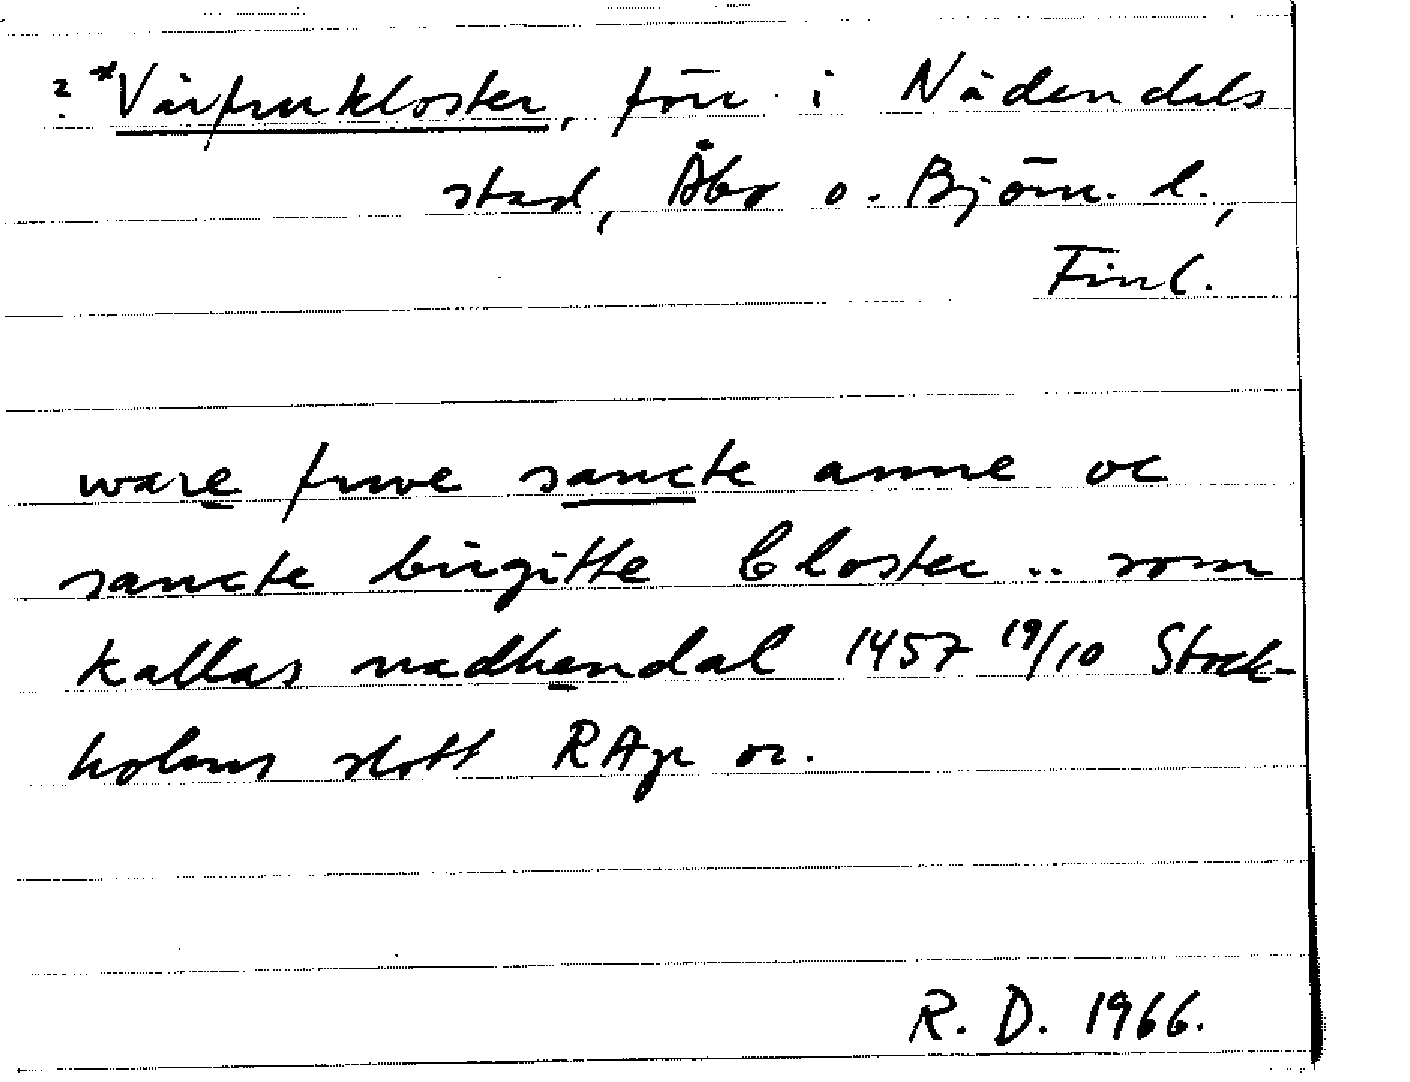 ? *Vårfrukloster, förr i Nådendals
stad, Åbo o. Björn. l.,
Finl.
ware frwe sancte anne oc
sancte birgitte Closter .. som
kallas nadhendal 1457 19/10 Stock-
holms slott RAp or.
R. D. 1966.